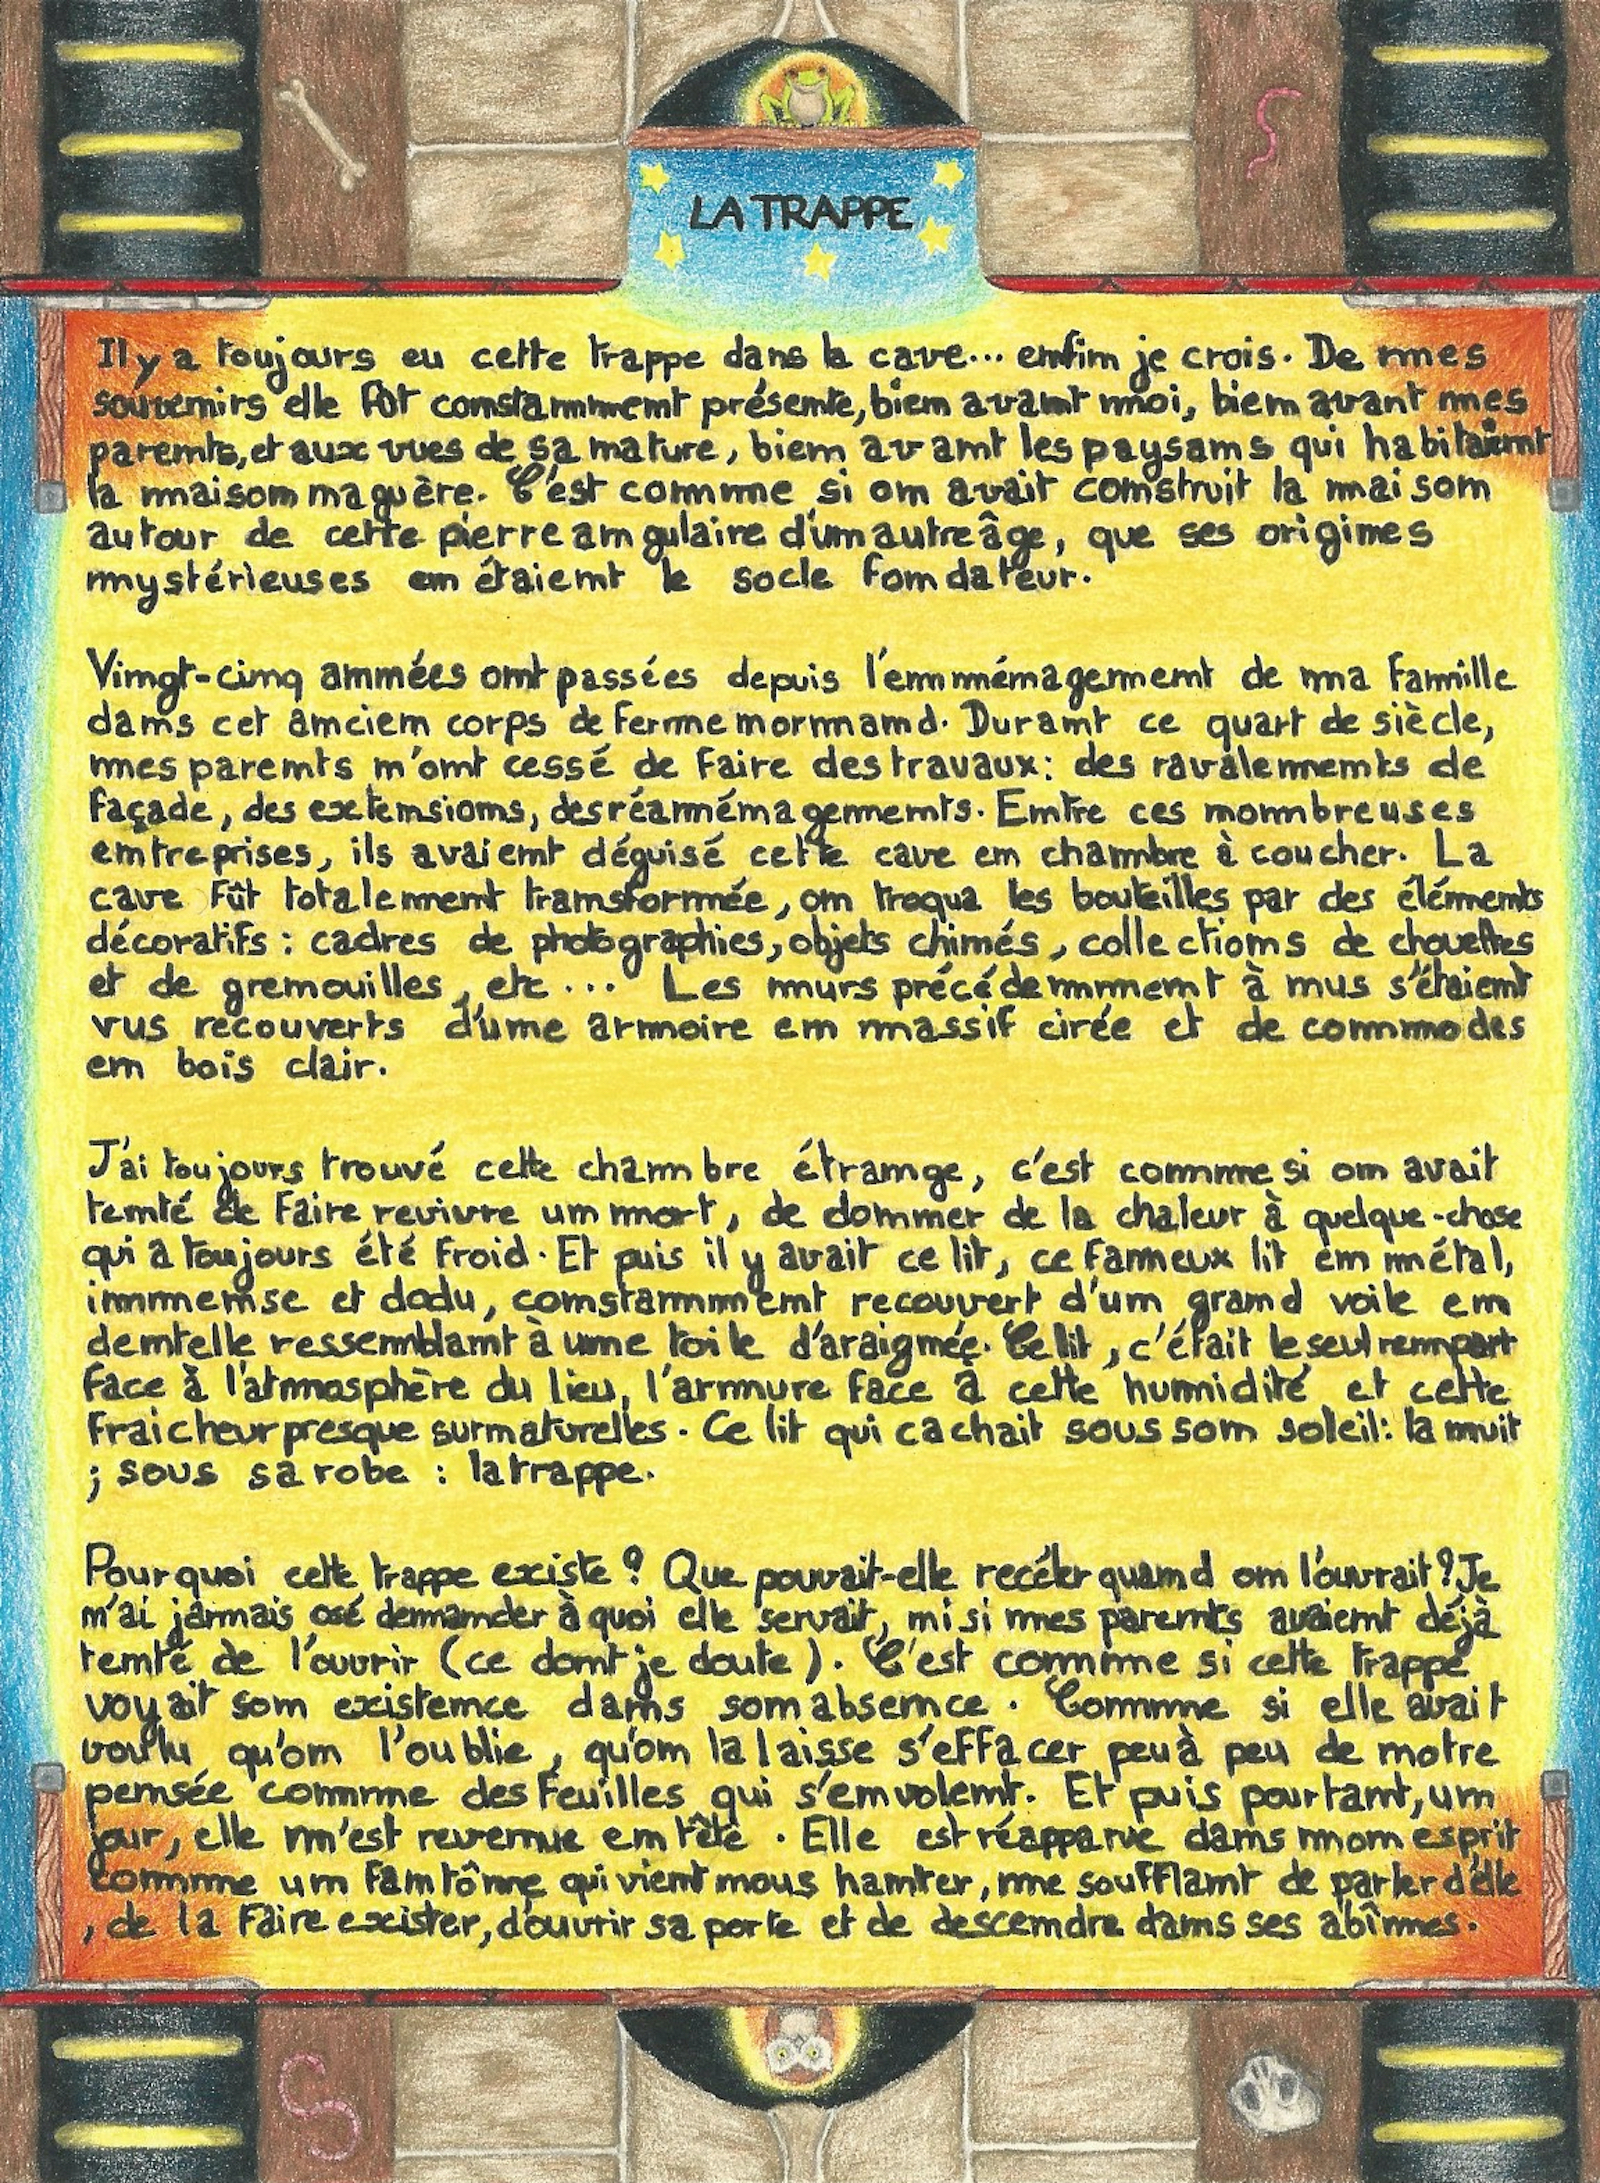 LA TRAPPE
Il y a toujours eu cette trappe dans la cave... enfin je crois. De mes
souvenirs elle fût constamment présente, bien avant moi, bien avant mes
parents, et aux vues de sa nature, bien avant les paysans qui habitaient
la maison naguère. C'est comme si on avait construit la maison
autour de cette pierre angulaire d'un autre âge, que ses origines
mystérieuses en étaient le socle fondateur.
Vingt-cinq années ont passées depuis l'emménagement de ma famille
dans cet ancien corps de ferme normand. Durant ce quart de siècle,
mes parents n'ont cessé de faire des travaux: des ravalements de
façade, des extensions, des réaménagements. Entre ces nombreuses
entreprises, ils avaient déguisé cette cave en chambre à coucher. La
cave fût totalement transformée, on troqua les bouteilles par des éléments
décoratifs : cadres de photographies, objets chinés, collections de chouettes
et de grenouilles, etc... Les murs précédemment à nus s'étaient
vus recouverts d'une armoire en massif cirée et de commodes
en bois clair.
J'ai toujours trouvé cette chambre étrange, c'est comme si on avait
tenté de faire revivre un mort, de donner de la chaleur à quelque-chose
qui a toujours été froid. Et puis il y avait ce lit, ce fameux lit en métal,
immense et dodu, constamment recouvert d'un grand voile en
dentelle ressemblant à une toile d'araignée. Ce lit, c'était le seul rempart
face à l'atmosphère du lieu, l'armure face à cette humidité et cette
fraicheur presque surnaturelles. Ce lit qui cachait sous son soleil: la nuit
; sous sa robe : la trappe.
Pourquoi cette trappe existe ? Que pouvait-elle recéler quand on l'ouvrait ? Je
n'ai jamais osé demander à quoi elle servait, ni si mes parents avaient déjà
tenté de l'ouvrir (ce dont je doute). C'est comme si cette trappe
voyait son existence dans son absence. Comme si elle avait
voulu qu'on l'oublie, qu'on la laisse s'effacer peu à peu de notre
pensée comme des feuilles qui s'envolent. Et puis pourtant, un
jour, elle m'est revenue en tête. Elle est réapparue dans mon esprit
comme un fantôme qui vient nous hanter, me soufflant de parler d'elle
, de la faire exister, d'ouvrir sa porte et de descendre dans ses abîmes.